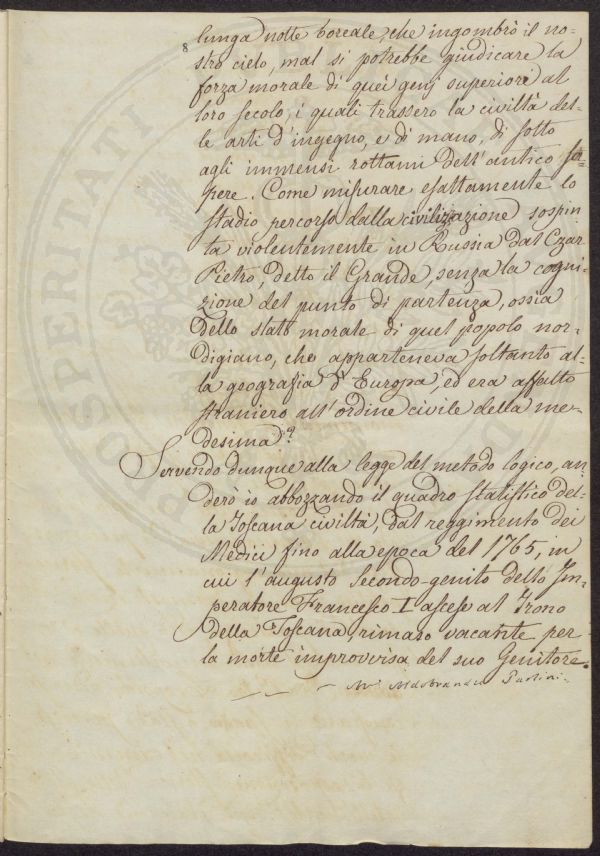 8
lunga notte boreale, che ingombrò il no-
stro cielo, mal si potrebbe giudicare la
forza morale di quei genj superiori al
loro secolo, i quali trassero la civiltà del-
le arti d'ingegno, e di mano, di sotto
agli immensi rottami dell'antico sa-
pere. Come misurare esattamente lo
stadio percorso dalla civilizazione sospin
ta violentemente in Russia dal Czar
Pietro, detto il Grande, senza la cogni-
zione del punto di partenza, ossia
dello stato morale di quel popolo nor-
digiano, che apparteneva soltanto al-
la geografia d'Europa, ed era affatto
straniero all'ordine civile della me-
desima?
Servendo dunque alla legge del metodo logico, an-
derò io abbozzando il quadro statistico del-
la Toscana civiltà, dal reggimento dei
Medici fino alla epoca del 1765, in
cui l'augusto Secondo-genito dello Im-
peratore Francesco I ascese al Trono
della Toscana rimaso vacante per
la morte improvvisa del suo Genitore.
Aldobrando Paolini
PROSPERITATI